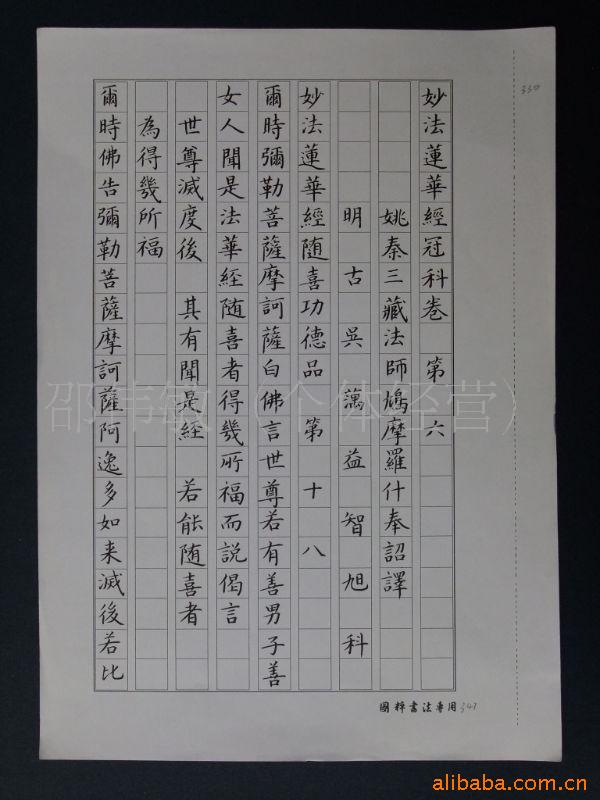 妙法蓮華經冠科卷 第 六
姚秦三藏法師鳩摩羅什奉詔譯
明 古 吳 蕅 益 智 旭 科
妙法蓮華經随喜功德品 第 十 八
爾時彌勒菩薩摩訶薩白佛言世尊若有善男子善
女人聞是法華經随喜者得幾所福而說偈言
世尊滅度後 其有聞是經 若能随喜者
為得幾所福
爾時佛告彌勒菩薩摩訶薩阿逸多如来滅後若比
國粹書法專用
347
330
邵伟敏（个体经营）
alibaba.com.cn